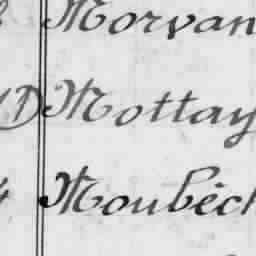 Morvan
(D) Mottay
4 Moubéch